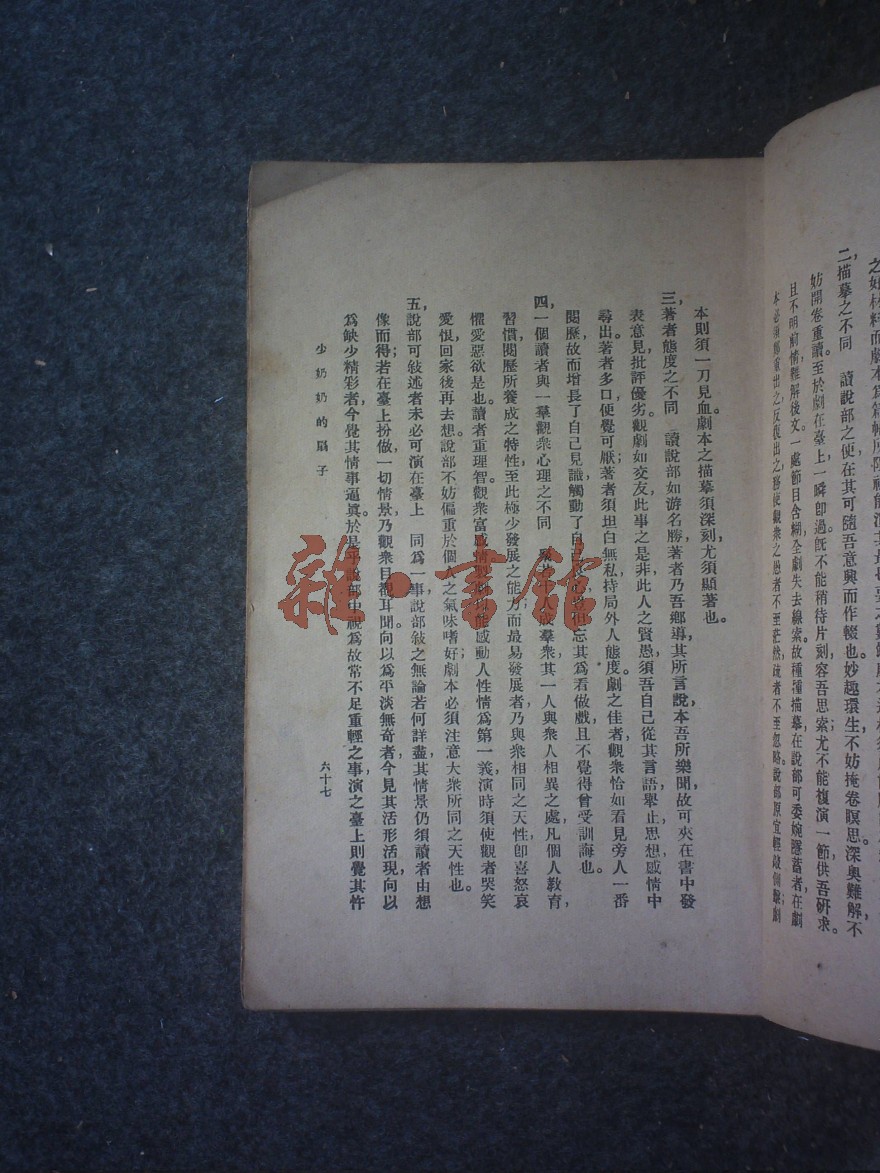 二，描摹之不同　讀說部之便在其可隨吾意興而作輟也。妙趣環生不妨掩卷瞑思深奧難解，不
妨開卷重讀。至於劇在臺上，一瞬卽過，旣不能稍待片刻，容吾思索，尤不能複演一節，供吾研求。
且不明前情，難解後文。一處節目含糊，全劇失去線索。故種種描摹，在說部可委婉蘊蓄者，在劇
本則須一刀見血。劇本之描摹須深刻，尤須顯著也。
三，著者態度之不同　讀說部如游名勝，著者乃吾鄉導，其所言說，本吾所樂聞，故可夾在書中發
表意見，批評優劣。觀劇如交友，此事之是非，此人之賢愚，須吾自己從其言語舉止思想感情中
尋出。著者多口，便覺可厭；著者須坦白無私，持局外人態度。劇之佳者，觀衆恰如看見旁人一番
閱歷，故而增長了自己見識，觸動了自己，但忘其爲看做戲，且不覺得曾受訓誨也。
四，一個讀者與一羣觀衆心理之不同　人或羣衆，其一人與衆人相異之處，凡個人敎育，
習慣，閱歷所養成之特性，至此極少發展之能力；而最易發展者，乃與衆相同之天性，卽喜怒哀
懼愛惡欲是也。讀者重理智，觀衆富感情，能感動人性情爲第一義，演時須使觀者哭笑
愛恨，回家後再去想。說部不妨偏重於個人之氣味嗜好，劇本必須注意大衆所同之天性也。
五，說部可敍述者未必可演在臺上　同爲一事，說部敍之，無論若何詳盡，其情景仍須讀者由想
像而得；若在臺上扮做，一切情景，乃觀衆目覩耳聞，向以爲平淡無奇者，今見其活形活現，向以
爲缺少精彩者，今覺其情事逼眞。於是乎說部中視爲故常不足重輕之事，演之臺上，則覺其忤
少奶奶的扇子
六十七
雜·書館